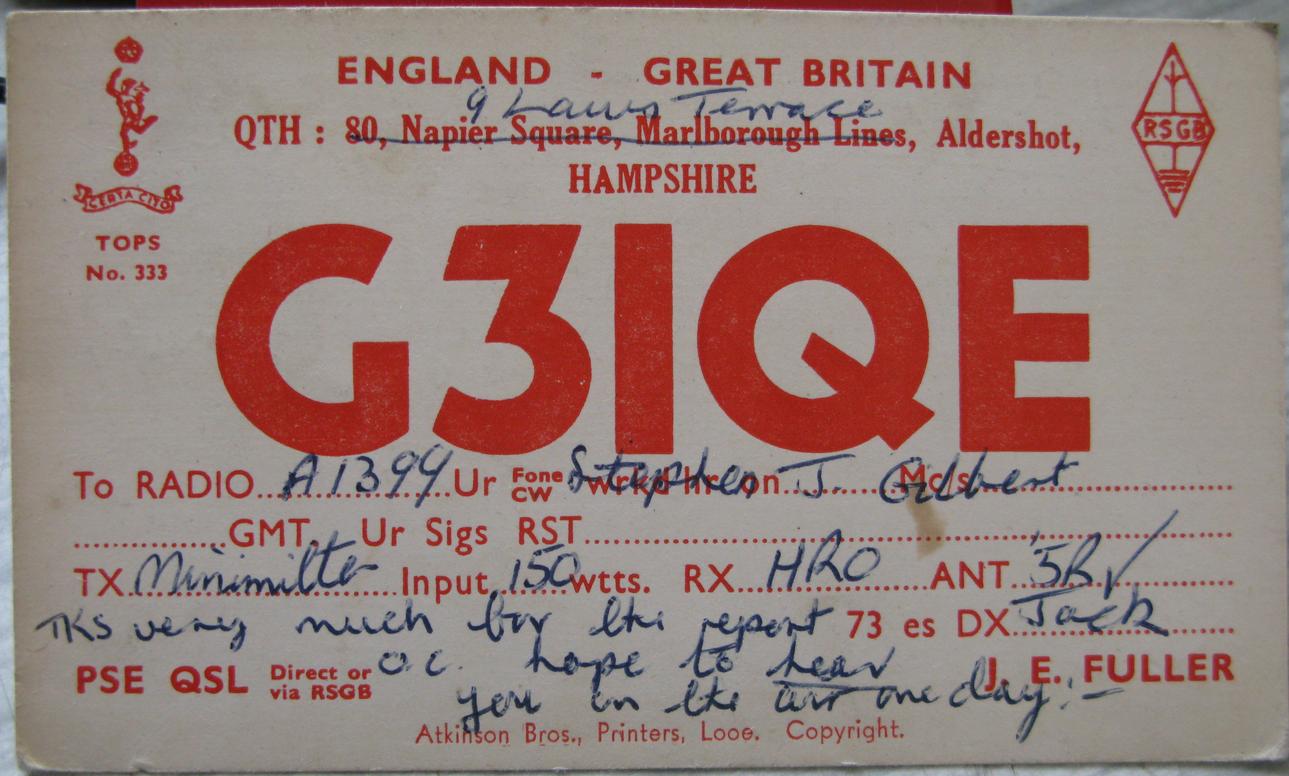 ENGLAND - GREAT BRITAIN
9 Laws Terrace
QTH : 80, Napier Square, Marlborough Lines, Aldershot,
HAMPSHIRE
RSGB
CERTA CITO
TOPS
No. 333
G3IQE
To RADIO A1399 Ur Fone CW wrkd hr on Mc/s Stephen J. Gilbert
GMT. Ur Sigs RST
TX Minimitter Input 150 wtts. RX HRO ANT 5R✓
TKS very much for the report 73 es DX Jack
PSE QSL Direct or via RSGB O.C. hope to hear J. E. FULLER
you on the air one day! -
Atkinson Bros., Printers, Looe. Copyright.